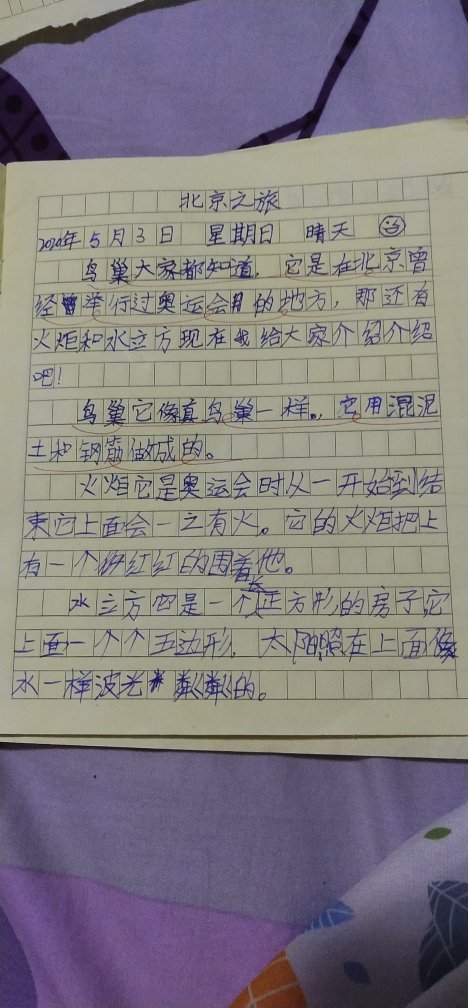 北京之旅
2020年5月3日 星期日 晴天
鸟巢大家都知道，它是在北京曾
经举行过奥运会的地方，那还有
火炬和水立方现在我给大家介绍介绍
吧！
鸟巢它像真鸟巢一样。，它用混泥
土和钢筋做成的。
火炬它是奥运会时从一开始到结
束它上面会一之有火。它的火炬把上
有一个红红的围着他。
水立方它是一个长正方形的房子，它
上面一个个五边形，太阳照在上面像
水一样波光粼粼的。